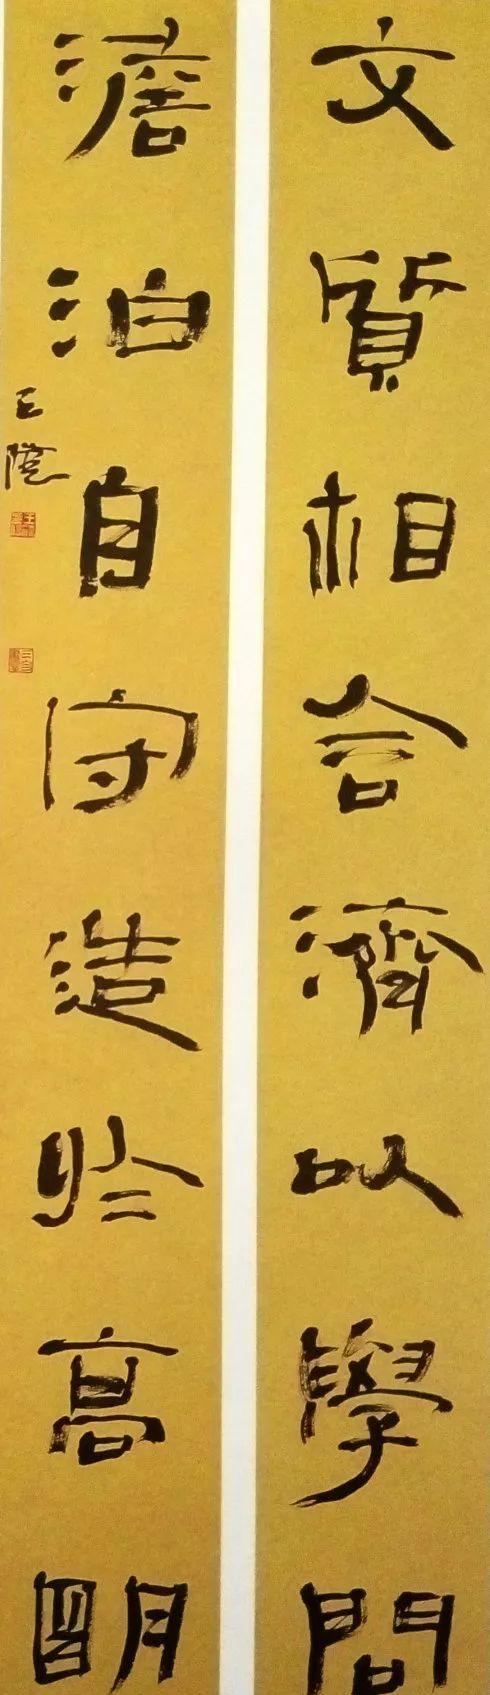 文質相合濟以學問
澹泊自守造於高明